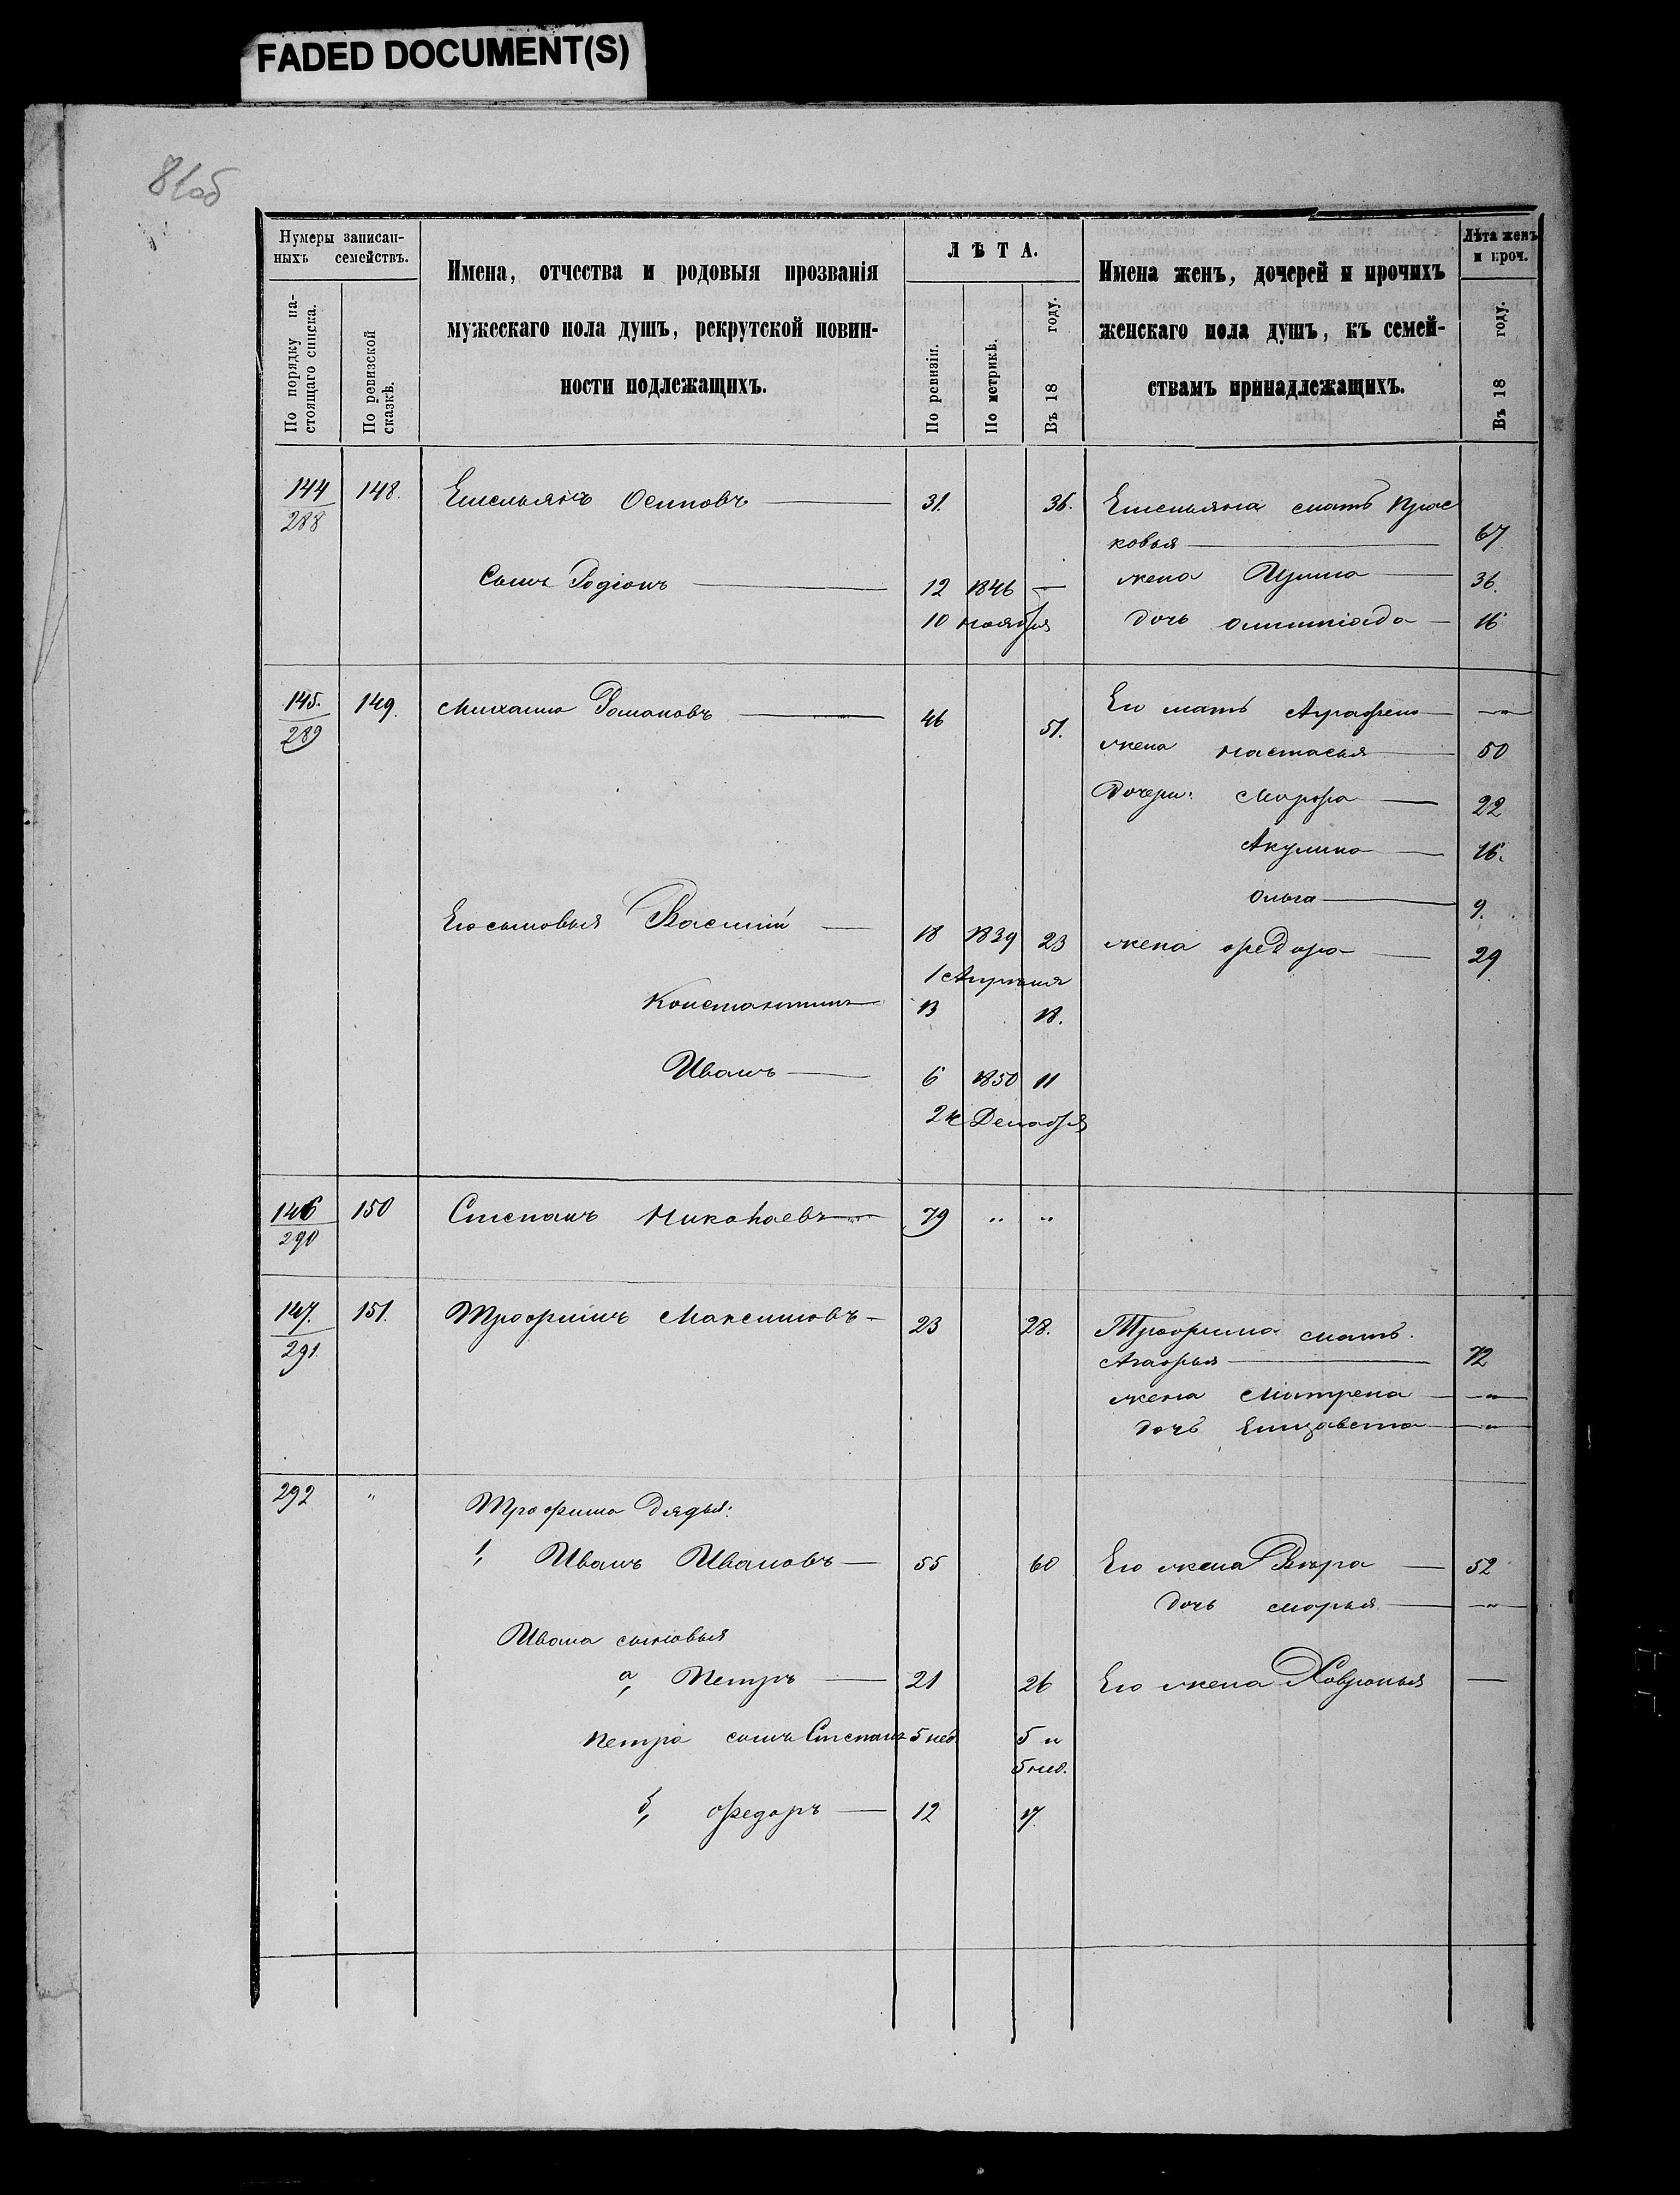 FADED DOCUMENT(S)
81об
Нумеры записан-
ныхъ семействъ.
По порядку на-
стоящаго списка.
По ревизской
сказкѣ.
Имена, отчества и родовыя прозванія
мужескаго пола душъ, рекрутской повин-
ности подлежащихъ.
ЛѢТА.
По ревизіи.
По метрикѣ.
Въ 18 году.
Имена женъ, дочерей и прочихъ
женскаго пола душъ, къ семей-
ствамъ принадлежащихъ.
Лѣта женъ
и проч.
Въ 18 году.
144 148. Емельянъ Осиповъ 31. 36. Емельяна мать Прас
288 ковья 67
Сынъ Родіонъ 12 1846 — жена Ирина 36.
10 ноября дочь Олимпіада 16
145. 149. Михаило Романовъ 46 51. Его мать Аграфена — " —
289 жена Настасья 50
Дочери: Марфа 22
Акулина 16.
Ольга 9.
Его сыновья Василій 18 1839 23 жена Федора 29
1 Апрѣля
Константинъ 13 18.
Иванъ 6 1850 11
24 Декабря
146 150 Степанъ Николаевъ 79 " "
290
147. 151. Трофимъ Максимовъ 23 28. Трофима мать
291 Агафья 72
жена Матрена — " —
дочь Елизавета — " —
292 " Трофима дядья:
1, Иванъ Ивановъ 55 60 Его жена Вѣра 52
дочь Марья — " —
Ивана сыновья
а, Петръ 21 26 Его жена Хавронья —
Петра сынъ Степанъ 5 нед. 5 и
5 нед.
б, Федоръ 12 17.